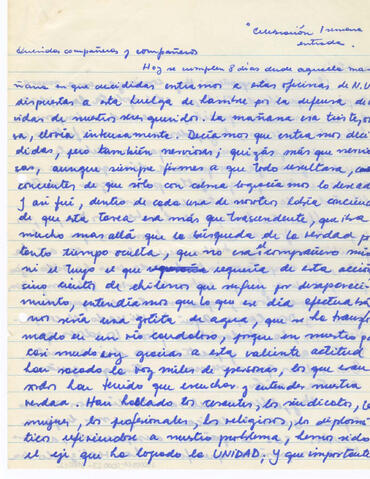 "Celebración 1 semana
entrada."
Queridas compañeras y compañeros
Hoy se cumplen 8 días desde aquella ma-
ñana en que decididas entramos a estas oficinas de N.U.
dispuestas a esta huelga de hambre por la defensa de
vidas de nuestros seres queridos. La mañana era triste,
llovía intensamente. Decíamos que entramos deci-
didas, pero también nerviosas; quizás más que nervio-
sas, aunque siempre firmes a que todo resultara,
concientes de que sólo con calma lograríamos lo deseado
Y así fué, dentro de cada una de nosotras había conciencia
de que esta tarea era más que trascendente, que iba
mucho mas allá que la búsqueda de la verdad por
tanto tiempo oculta, que no era el compañero mío
ni el tuyo el que requería de esta acción
sino cientos de chilenos que sufren por desapareci-
miento, entendíamos que lo que ese día efectuába
mos sería una gotita de agua, que se ha transfor
mado en un río caudaloso, porque en nuestro país
casi mudo hoy gracias a esta valiente actitud
han sacado la voz miles de personas, los que eran
sordos han tenido que escuchar y entender nuestra
verdad. Han hablado los cesantes, los sindicatos, la
mujer, los profesionales, los religiosos, los diplomá
ticos refiriendose a nuestro problema, hemos sido
el eje que ha logrado la UNIDAD; Y que importante